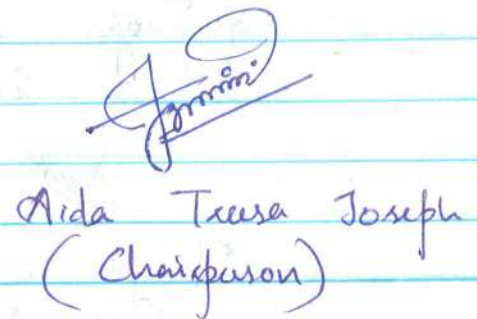 Aida Treesa Joseph
(Chairperson)